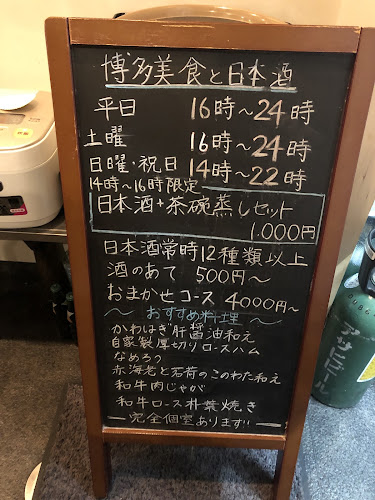 博多美食と日本酒
平日 16時～24時
土曜 16時～24時
日曜・祝日 14時～22時
14時～16時限定
日本酒+茶碗蒸しセット
1.000円
日本酒常時12種類以上
酒のあて 500円～
おまかせコース 4000円～
～おすすめ料理～
かわはぎ肝醤油和え
自家製厚切りロースハム
なめろう
赤海老と茗荷のこのわた和え
和牛肉じゃが
和牛ロース朴葉焼き
―完全個室あります!!―
アサヒビール